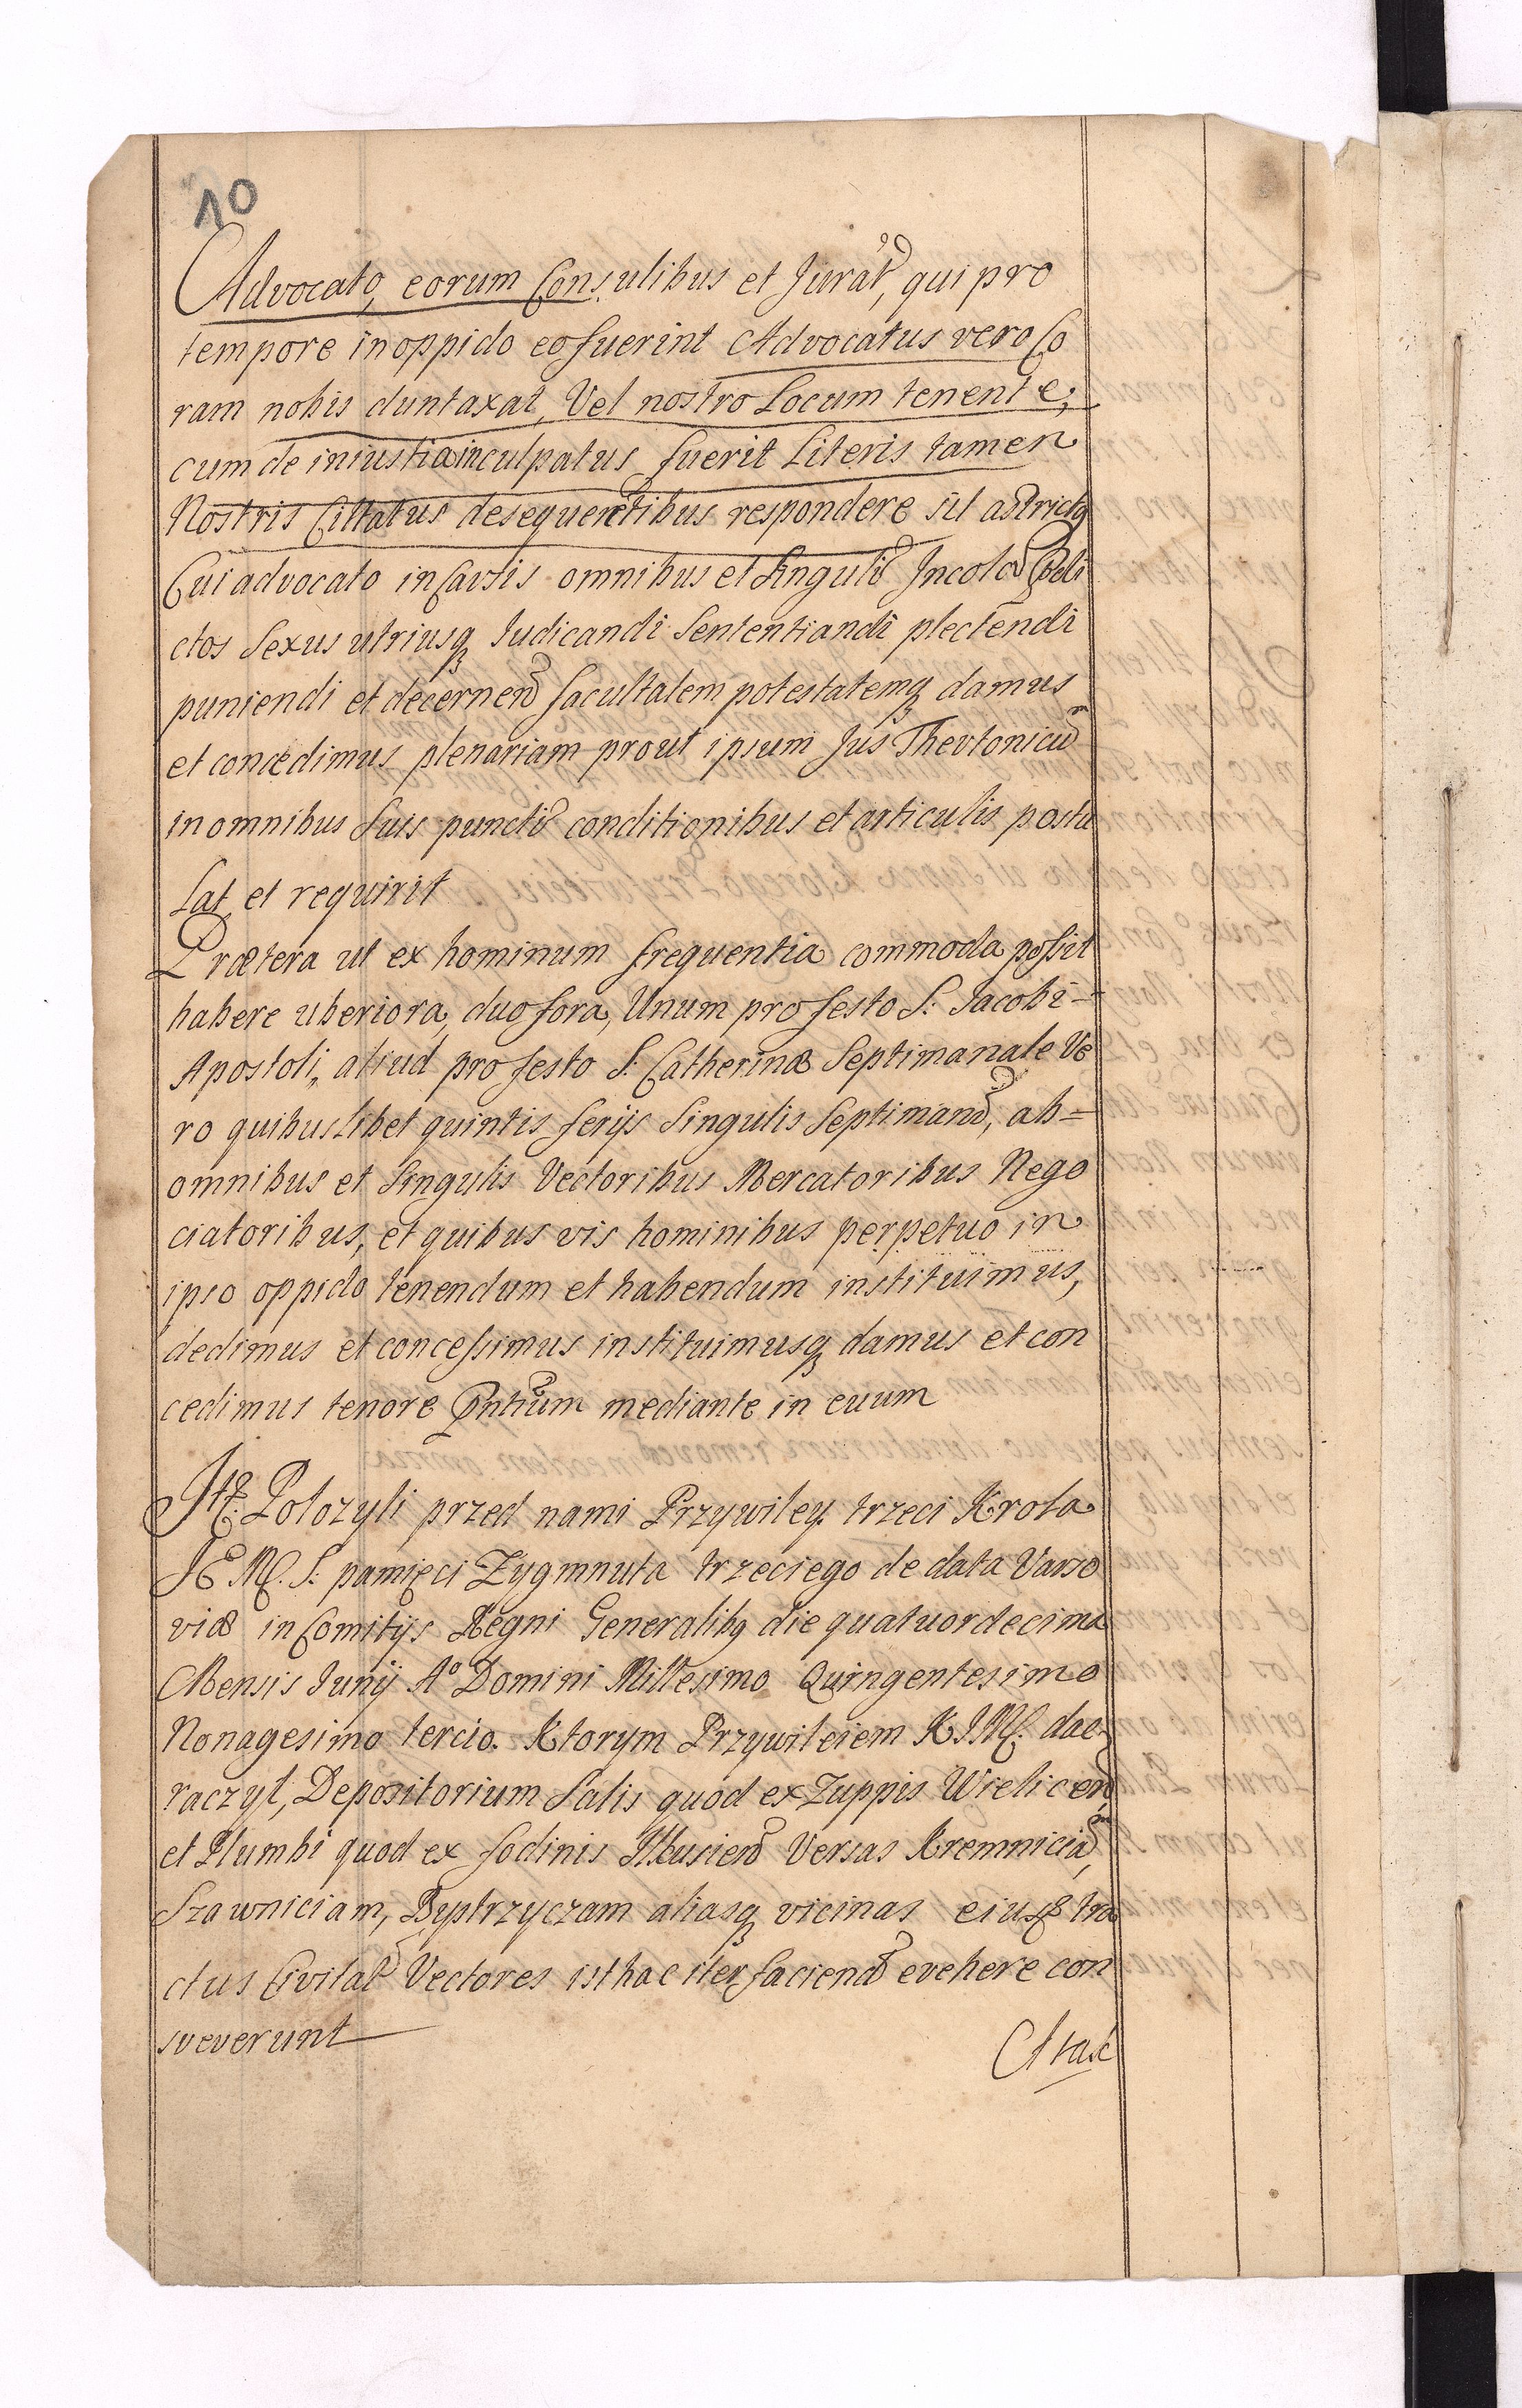 10
Advocato, eorum Consulibus et Jurat, qui pro
tempore in oppido eo fuerint Advocatus vero Co
ram nobis duntaxat, Vel nostro Locum tenente,
cum de iniustia inculpatus fuerit Literis tamen
Nostris Cittatus desequentibus respondere sit astrictq
Cui advocato in Causis omnibus et Singulis Incolas
ctos Sexus utriusq Iudicandi Sententiandi plectendi
puniendi et decernend facultatem potestatemq damus
et concedimus plenariam prout ipsum Jus Thevtonicum
in omnibus Suis punctis conditionibus et articulis postu
lat et requirit
Prætera ut ex hominum frequentia commoda possit
habere uberiora, duo fora, Unum pro festo S: Jacobi
Apostoli, aliud pro festo S: Catherinæ Septimanale Ve
ro quibuslibet quintis ferijs Singulis Septimand, ab=
omnibus et Singulis Vectoribus Mercatoribus Nego
ciatoribus, et quibus vis hominibus perpetuo in
ipso oppido tenendum et habendum instituimus,
dedimus et concessimus instituimusq damus et con
cedimus tenore Pntium mediante in euum
Itt. Polozyli przed nami Przywiley trzeci Krola
JE M. S: pamięci Zygmnuta trzeciego de data Varso
viæ in Comitijs Regni Generalibq die quatuordecima
Mensis Junij Aº Domini Millesimo Quingentesimo
Nonagesimo tercio. Ktorym Przywileiem K J M. dac
raczyl, Depositorium Salis quod ex Zuppis Wielicen,
et Plumbi quod ex fodinis Ilkusien Versas Kremniciam,
Szawniciam, Byptrzyczam aliasq vicinas eiusd tra
ctus Civitat Vectores isthac iter faciend evehere con
sveverunt